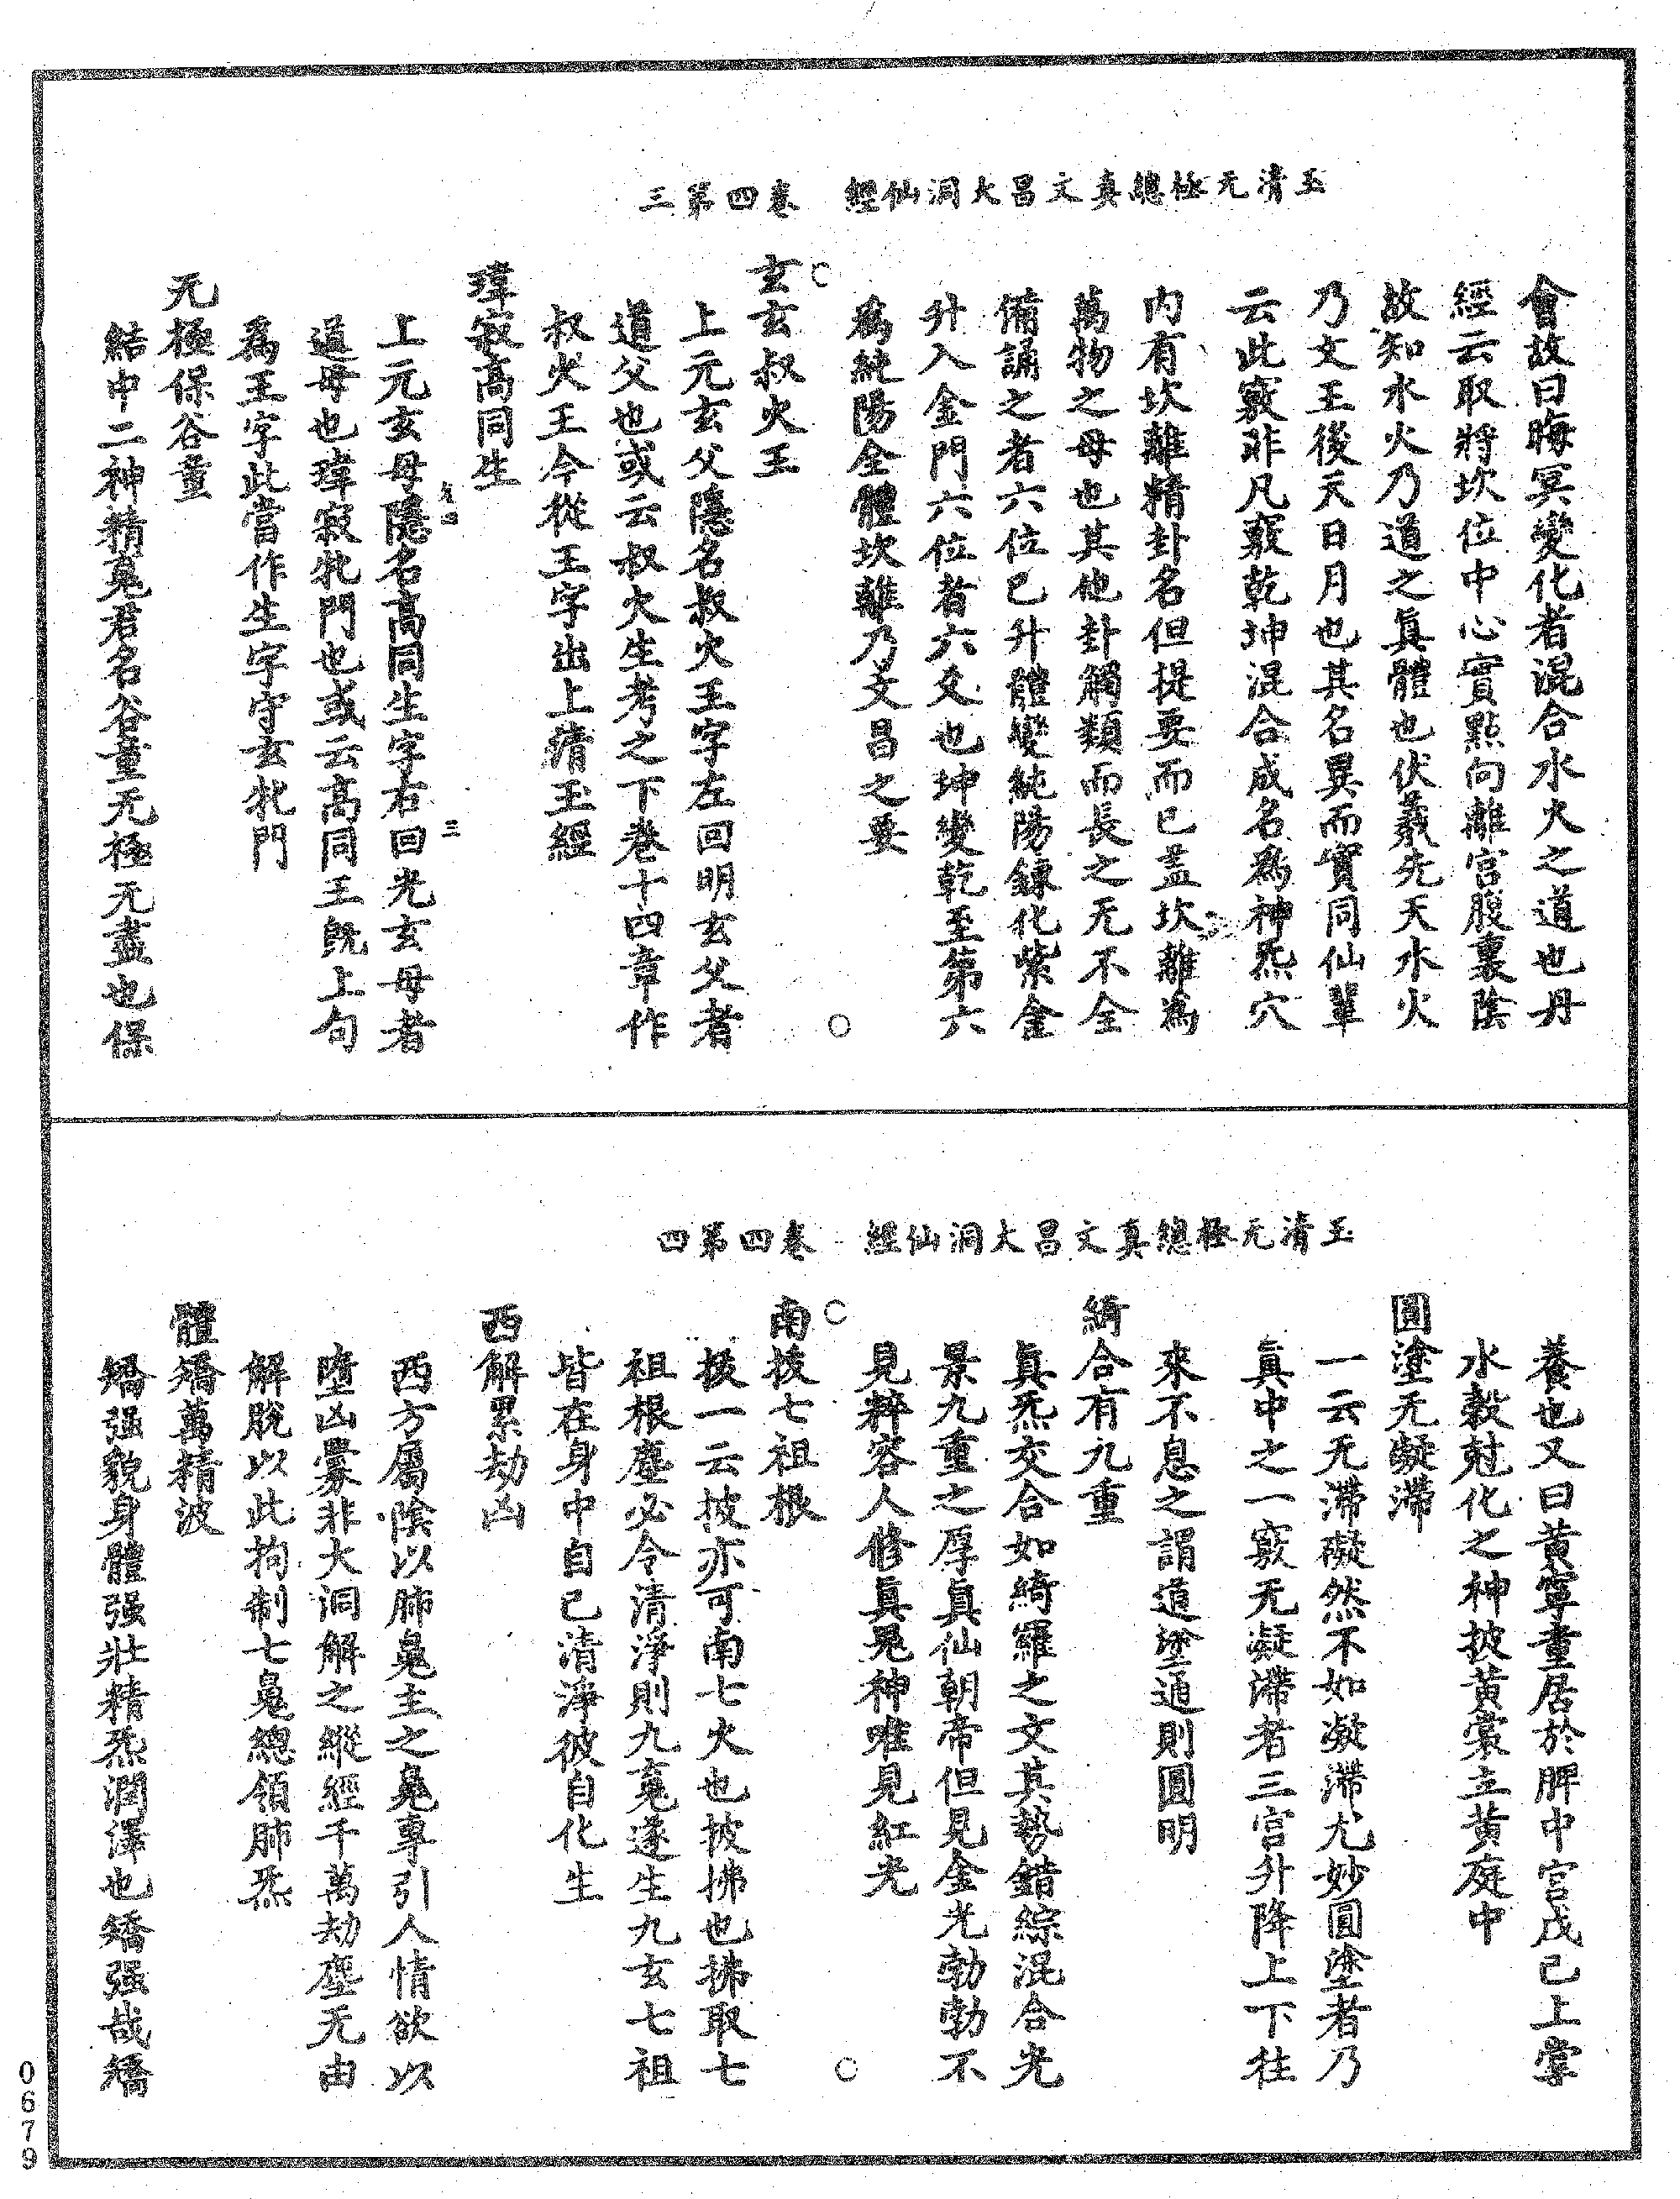 玉清无極總真文昌大洞仙經　卷四第三
會故曰晦冥變化者混合水火之道也丹
經云取將坎位中心實點向離宮腹裏陰
故知水火乃道之眞體也伏羲先天水火
乃文王後天日月也其名異而實同仙輩
云此竅非凡竅乾坤混合成名爲神炁穴
内有坎離精卦名但提要而已蓋坎離爲
萬物之母也其他卦觸類而長之无不全
備誦之者六位已升體變純陽鍊化紫金
升入金門六位者六爻也坤變乾至第六
爲純陽全體坎離乃文昌之要
玄玄叔火王
上元玄父隱名叔火王字左回明玄父者
道父也或云叔火生考之下卷十四章作
叔火王今從王字出上清玉經
瑋寂高同生
上元玄母隱名高同生字右回光玄母者
道母也瑋寂牝門也或云高同王旣上句
爲王字此當作生字守玄牝門
卷四　三
无極保谷童
結中二神精䰟君名谷童无極无盡也保
玉清无極總真文昌大洞仙經　卷四第四
養也又曰黃寧童居於脾中宮戊己上掌
水穀尅化之神披黃裳立黃庭中
圓塗无凝滯
一云无滯礙然不如凝滯尤妙圓塗者乃
眞中之一竅无凝滯者三宮升降上下往
來不息之謂道塗通則圓明
綺合有九重
眞炁交合如綺羅之文其勢錯綜混合光
景九重之厚眞仙朝帝但見金光勃勃不
見粹容人修眞見神唯見紅光
南拔七祖根
拔一云披亦可南七火也披拂也拂取七
祖根塵必令清淨則九䰟遂生九玄七祖
皆在身中自己清淨彼自化生
西解累劫凶
西方屬陰以肺䰠主之䰠專引人情欲以
墮凶釁非大洞解之縱經千萬劫塵无由
解脫以此拘制七䰠總領肺炁
體矯萬精波
矯强貌身體强壯精炁潤澤也矯强哉矯
0679